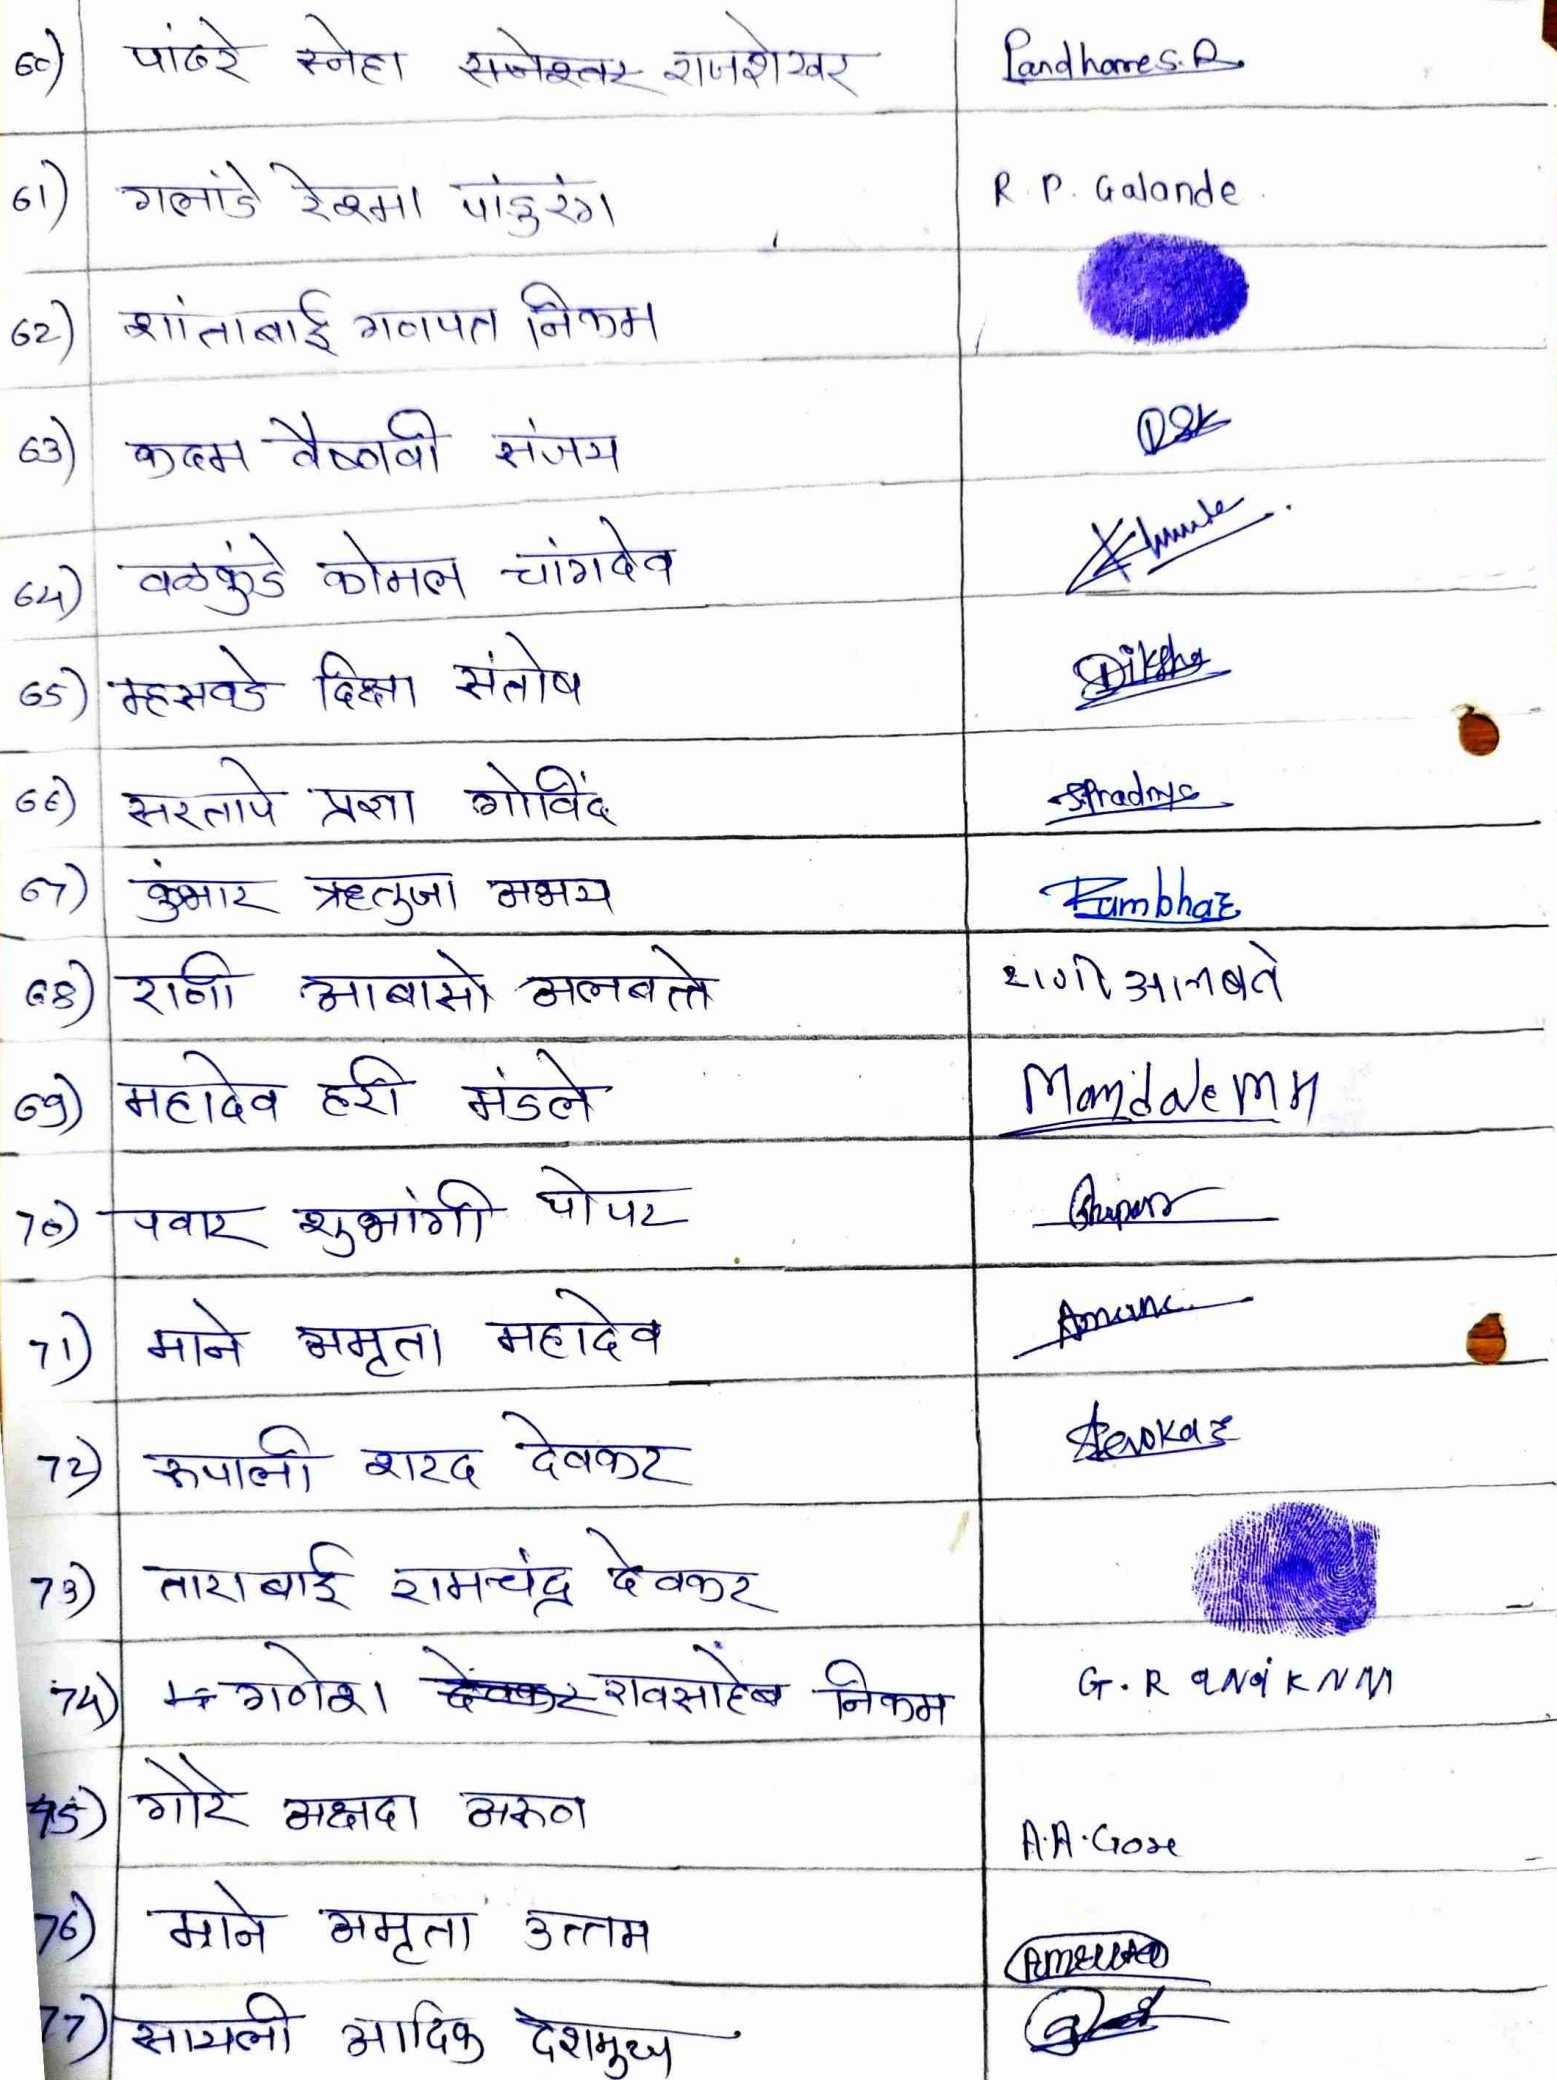 60) पांढरे स्नेहा राजशेखर Pandhare S.R.
61) गलांडे रेश्मा पांडुरंग R. P. Galande.
62) शांताबाई गणपत निकम
63) कदम वैष्णवी संजय DSK
64) वळकुंडे कोमल चांगदेव
65) म्हसवडे दिक्षा संतोष Diksha
66) सरतापे प्रज्ञा गोविंद Spradnya
67) कुंभार ऋतुजा अभय Kumbhar
68) राणी आबासो अलबत्ते राणी आलबते
69) महादेव हरी मंडले Mandale M H
70) पवार शुभांगी पोपट
71) माने अमृता महादेव Amane
72) रूपाली शरद देवकर Devokar
73) ताराबाई रामचंद्र देवकर
74) गणेश देवकर रावसाहेब निकम G. R
75) गोरे अक्षदा अरूण A.A. Gore
76) माने अमृता उत्तम
77) सायली आदिक देशमुख